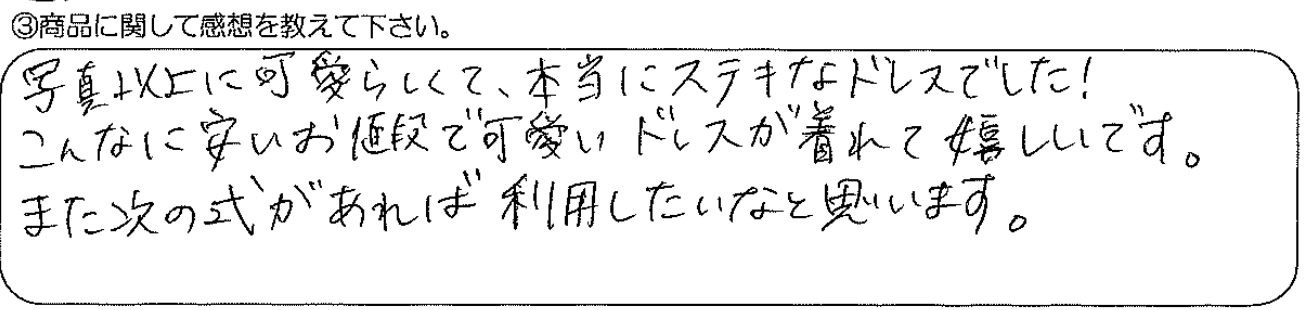 ③商品に関して感想を教えて下さい。
写真以上に可愛らしくて、本当にステキなドレスでした!
こんなに安いお値段で可愛いドレスが着れて嬉しいです。
また次の式があれば利用したいなと思います。